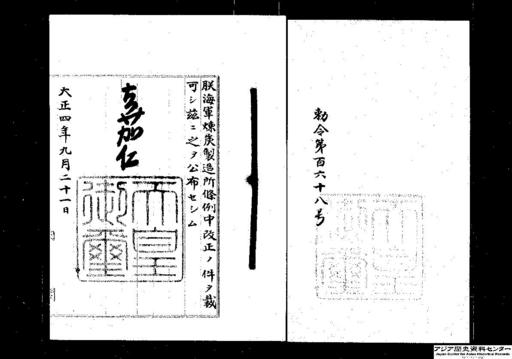 勅令第百六十八号
朕海軍煉炭製造所條例中改正ノ件ヲ裁
可シ茲ニ之ヲ公布セシム
嘉仁
天皇
御璽
大正四年九月二十一日
アジア歴史資料センター
Japan Center for Asian Historical Records